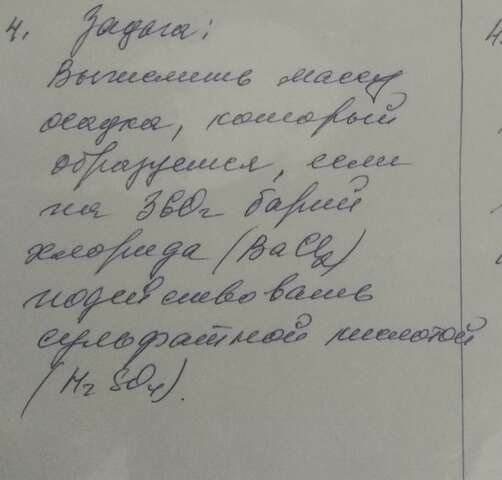 4. Задача:
Вычислить массу
осадка, который
образуется, если
на 360г барий
хлорида (BaCl2)
подействовать
сульфатной кислотой
(H2SO4).